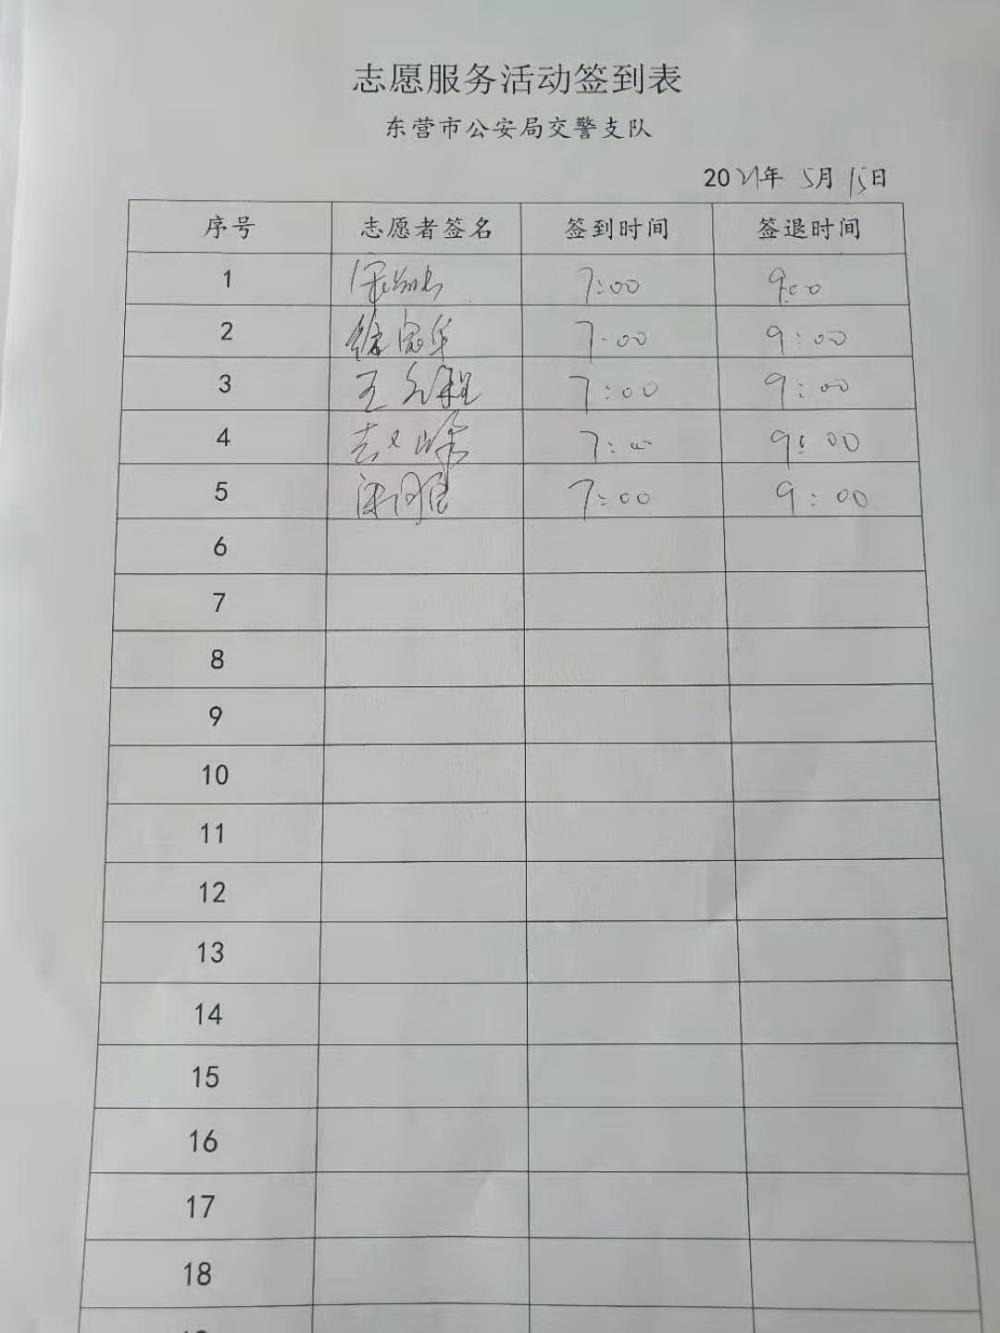 志愿服务活动签到表
东营市公安局交警支队
2021年 5月 15日
序号 志愿者签名 签到时间 签退时间
1 7:00 9:00
2 徐冠华 7:00 9:00
3 王 程 7:00 9:00
4 7:00 9:00
5 7:00 9:00
6
7
8
9
10
11
12
13
14
15
16
17
18